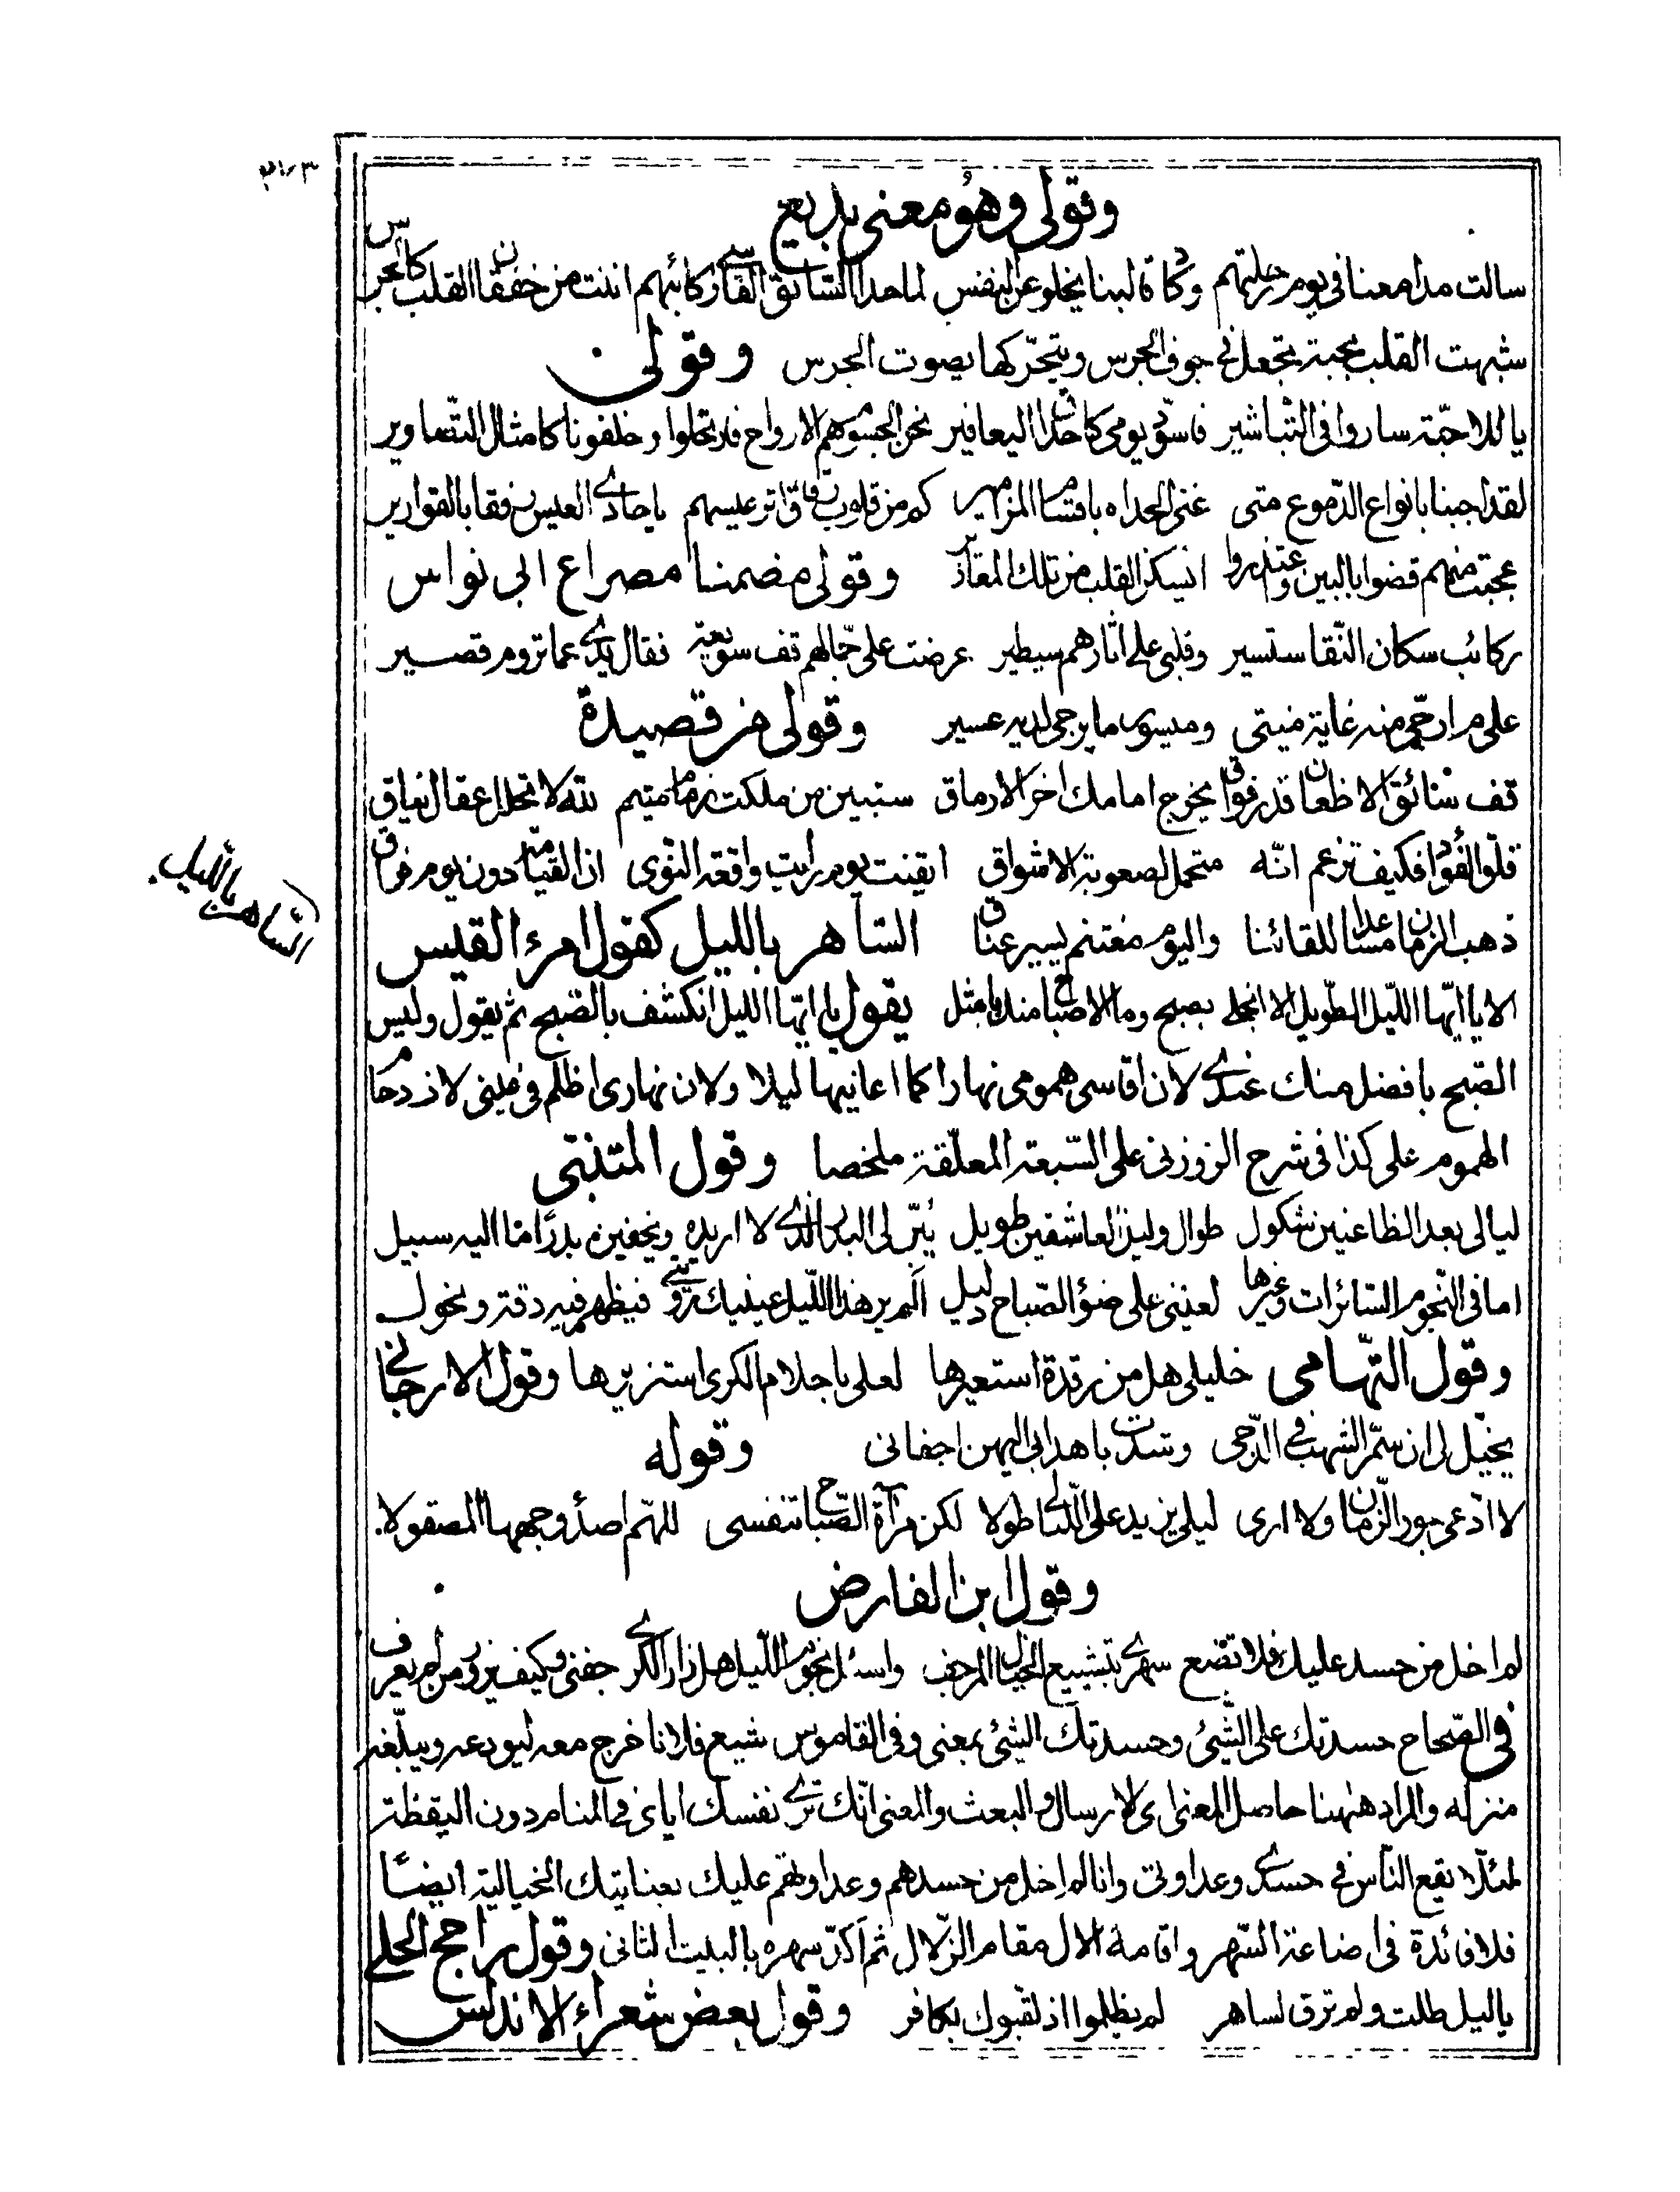 وقولی وهو معنی بدیع
سالت مدامعنا فی یوم رحلتهم وکاد قالبنا یخلو عن النفس لما حدا السائق القاسی رکائبهم اننت من خفقان القلب کالجرس
شبهت القلب بحبة تجعل فی جوف الجرس ویتحرّکها یصوت الجرس وقولی
یا للاحبّة ساروا فی التباشیر فاسودّ یومی کاحداق الیعافیر نحن الجسوم هم الارواح قد رتحلوا وخلفونا کامثال التصاویر
لقد اجبنا بانواع الدّموع متی غنی الحداه باقسام المزامیر کم من قلوب رقاق اثر عیسهم یا حادی العیس رفقا بالقواریر
عجبت منهم قضوا بالبین واعتذروا انیسکن القلب من تلك المعاذیر وقولی مضمنا مصراع ابی نواس
رکائب سکان النّقا ستسیر وقلبی علی اثارهم سیطیر عرضت علی حمّالهم قف سویعة فقال یدی عما تروم قصیر
علی مرارجّی منه غایة منیتی ومیسور ما یرجی لدیه عسیر وقولی من قصیدة
قف سائق الاظعان قدر فواق یخرج امامك اخر الارماق ستبین من ملکت زمام متیم لله لا تحلل عقال نیاق
قلّوا الفؤاد فکیف تزعم انّه متحمل لصعوبة الاشواق ایقنت یوم رایت واقعة النّوی ان القیامة دون یوم فراق
ذهب الزمان مساعدا للقائنا والیوم مغتنم یسیر عناق الساهر باللیل کقول امرء القیس
الساهر باللیل
الا یا ایّها اللّیل الطّویل الا انجلی بصبح وما الاصباح منك بامثل یقول یا ایّها اللیل انکشف بالصّبح ثم یقول ولیس
الصّبح بافضل منك عندی لان اقاسی همومی نهارا کما اعانیها لیلا ولان نهاری اظلم فی عینی لازدحام
الهموم علی کذا فی شرح الزوزنی علی السّبعة المعلّقة ملخصا وقول المتنبّی
لیالی بعد الظاعنین شکول طوال ولیل العاشقین طویل یُبنّ لی البدر الذی لا اریده ویخفین بدرًا ما الیه سبیل
اما فی النّجوم السّائرات وغیرها لعینی علی ضوء الصّباح دلیل الَم یر هذا اللّیل عینیك رؤیتی فیظهر فیه رقة ونحول
وقول التّهامی خلیلی هل من رقدة استعیرها لعلی باحلام الکری استزیرها وقول الارجانی
یخیّل لی ان سمّر الشهب فی الدّجی وشدّت باهدابی الیهن اجفانی وقوله
لا ادّعی جور الزّمان ولا اری لیلی یزید علی اللّیالی طولا لکن مرآة الصّباح تنفسی للهّم اصدأ وجهها المصقولا
وقول ابن الفارض
لم اخل من حسد علیك فلا تضع سهری بتشییع الخیال المرجف واسئل نجوم اللّیل هل زار الکری جفنی وکیف یزور من لم یعرف
فی الصّحاح حسدتك علی الشّئ وحسدتك الشّئ بمعنی وفی القاموس شیع فلانا خرج معه لیودعه ویبلّغه
منزله والمراد هٰهنا حاصل المعنی ای الارسال والبعث والمعنی انّك تری نفسك ایای فی المنام دون الیقظة
لئلّا یقع النّاس فی حسدی وعداوتی وانا لم اخل من حسدهم وعداوتهم علیك بعنایتك الخیالیة ایضًا
فلا فائدة فی اضاعة السّهر واقامة الآل مقام الزّلال ثم اکدّ سهره بالبیت الثانی وقول راجح الحلی
یا لیل طلت ولم ترق لساهر لم یظلموا اذ لقبوك بکافر وقول بعض شعراء الاندلس